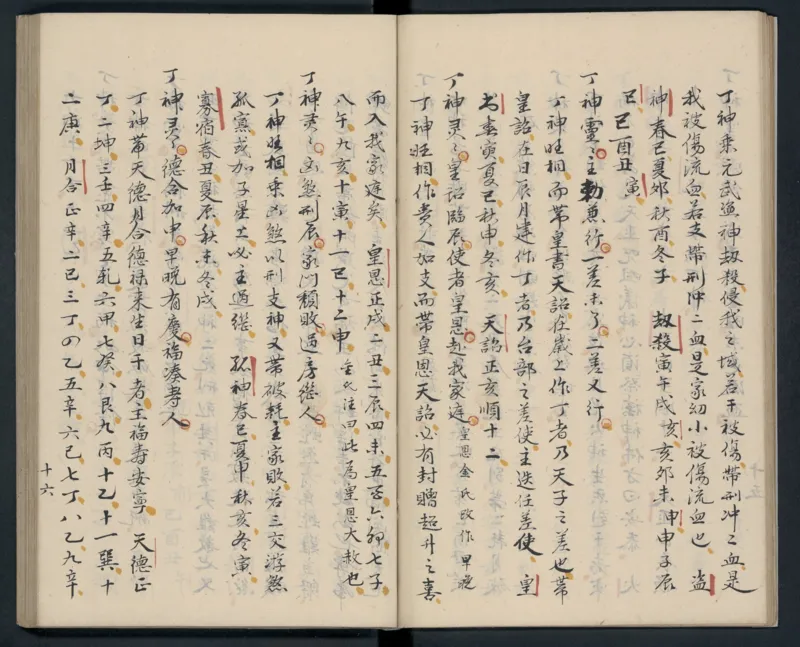 丁神乘元武盜神劫殺侵我之域若干被傷帶刑冲二血是
我被傷流血若支帶刑冲二血是家幼小被傷流血也 盜
神春巳夏卯秋酉冬子 劫殺寅午戌亥亥卯未申申子辰
巳巳酉丑寅
丁神靈二主勅兼行一差未了二差又行
丁神旺相而帶皇書天詔在歲上作丁者乃天子之差也帶
皇詔在日辰月建作丁者乃台部之差使主迭任差使 皇
书春寅夏巳秋申冬亥 天詔正亥順十二
丁神灵二皇詔臨辰使者皇恩赴我家庭 皇恩金氏改作早晚
丁神旺相作贵人如支而帶皇恩天詔必有封贈超升之喜
而入我家庭矣 皇恩正戌二丑三辰四未五酉六卯七子
八午九亥十寅十一巳十二申 金氏注曰此為皇恩大赦也
丁神灵二凶煞刑辰家门頹敗過房繼人
丁神旺相乘凶煞以刑支神又帶破耗主家敗若三交游煞
孤寡或加子星上必主過継 孤神春巳夏申秋亥冬寅
寡宿春丑夏辰秋未冬戌
丁神灵二德合加中早晚有慶福湊人
丁神帶天德月合德祿来生日干者主福壽安寧 天德正
丁二坤三壬四辛五乾六甲七癸八艮九丙十乙十一巽十
二庚 月合正辛二己三丁四乙五辛六己七丁八乙九辛
十六